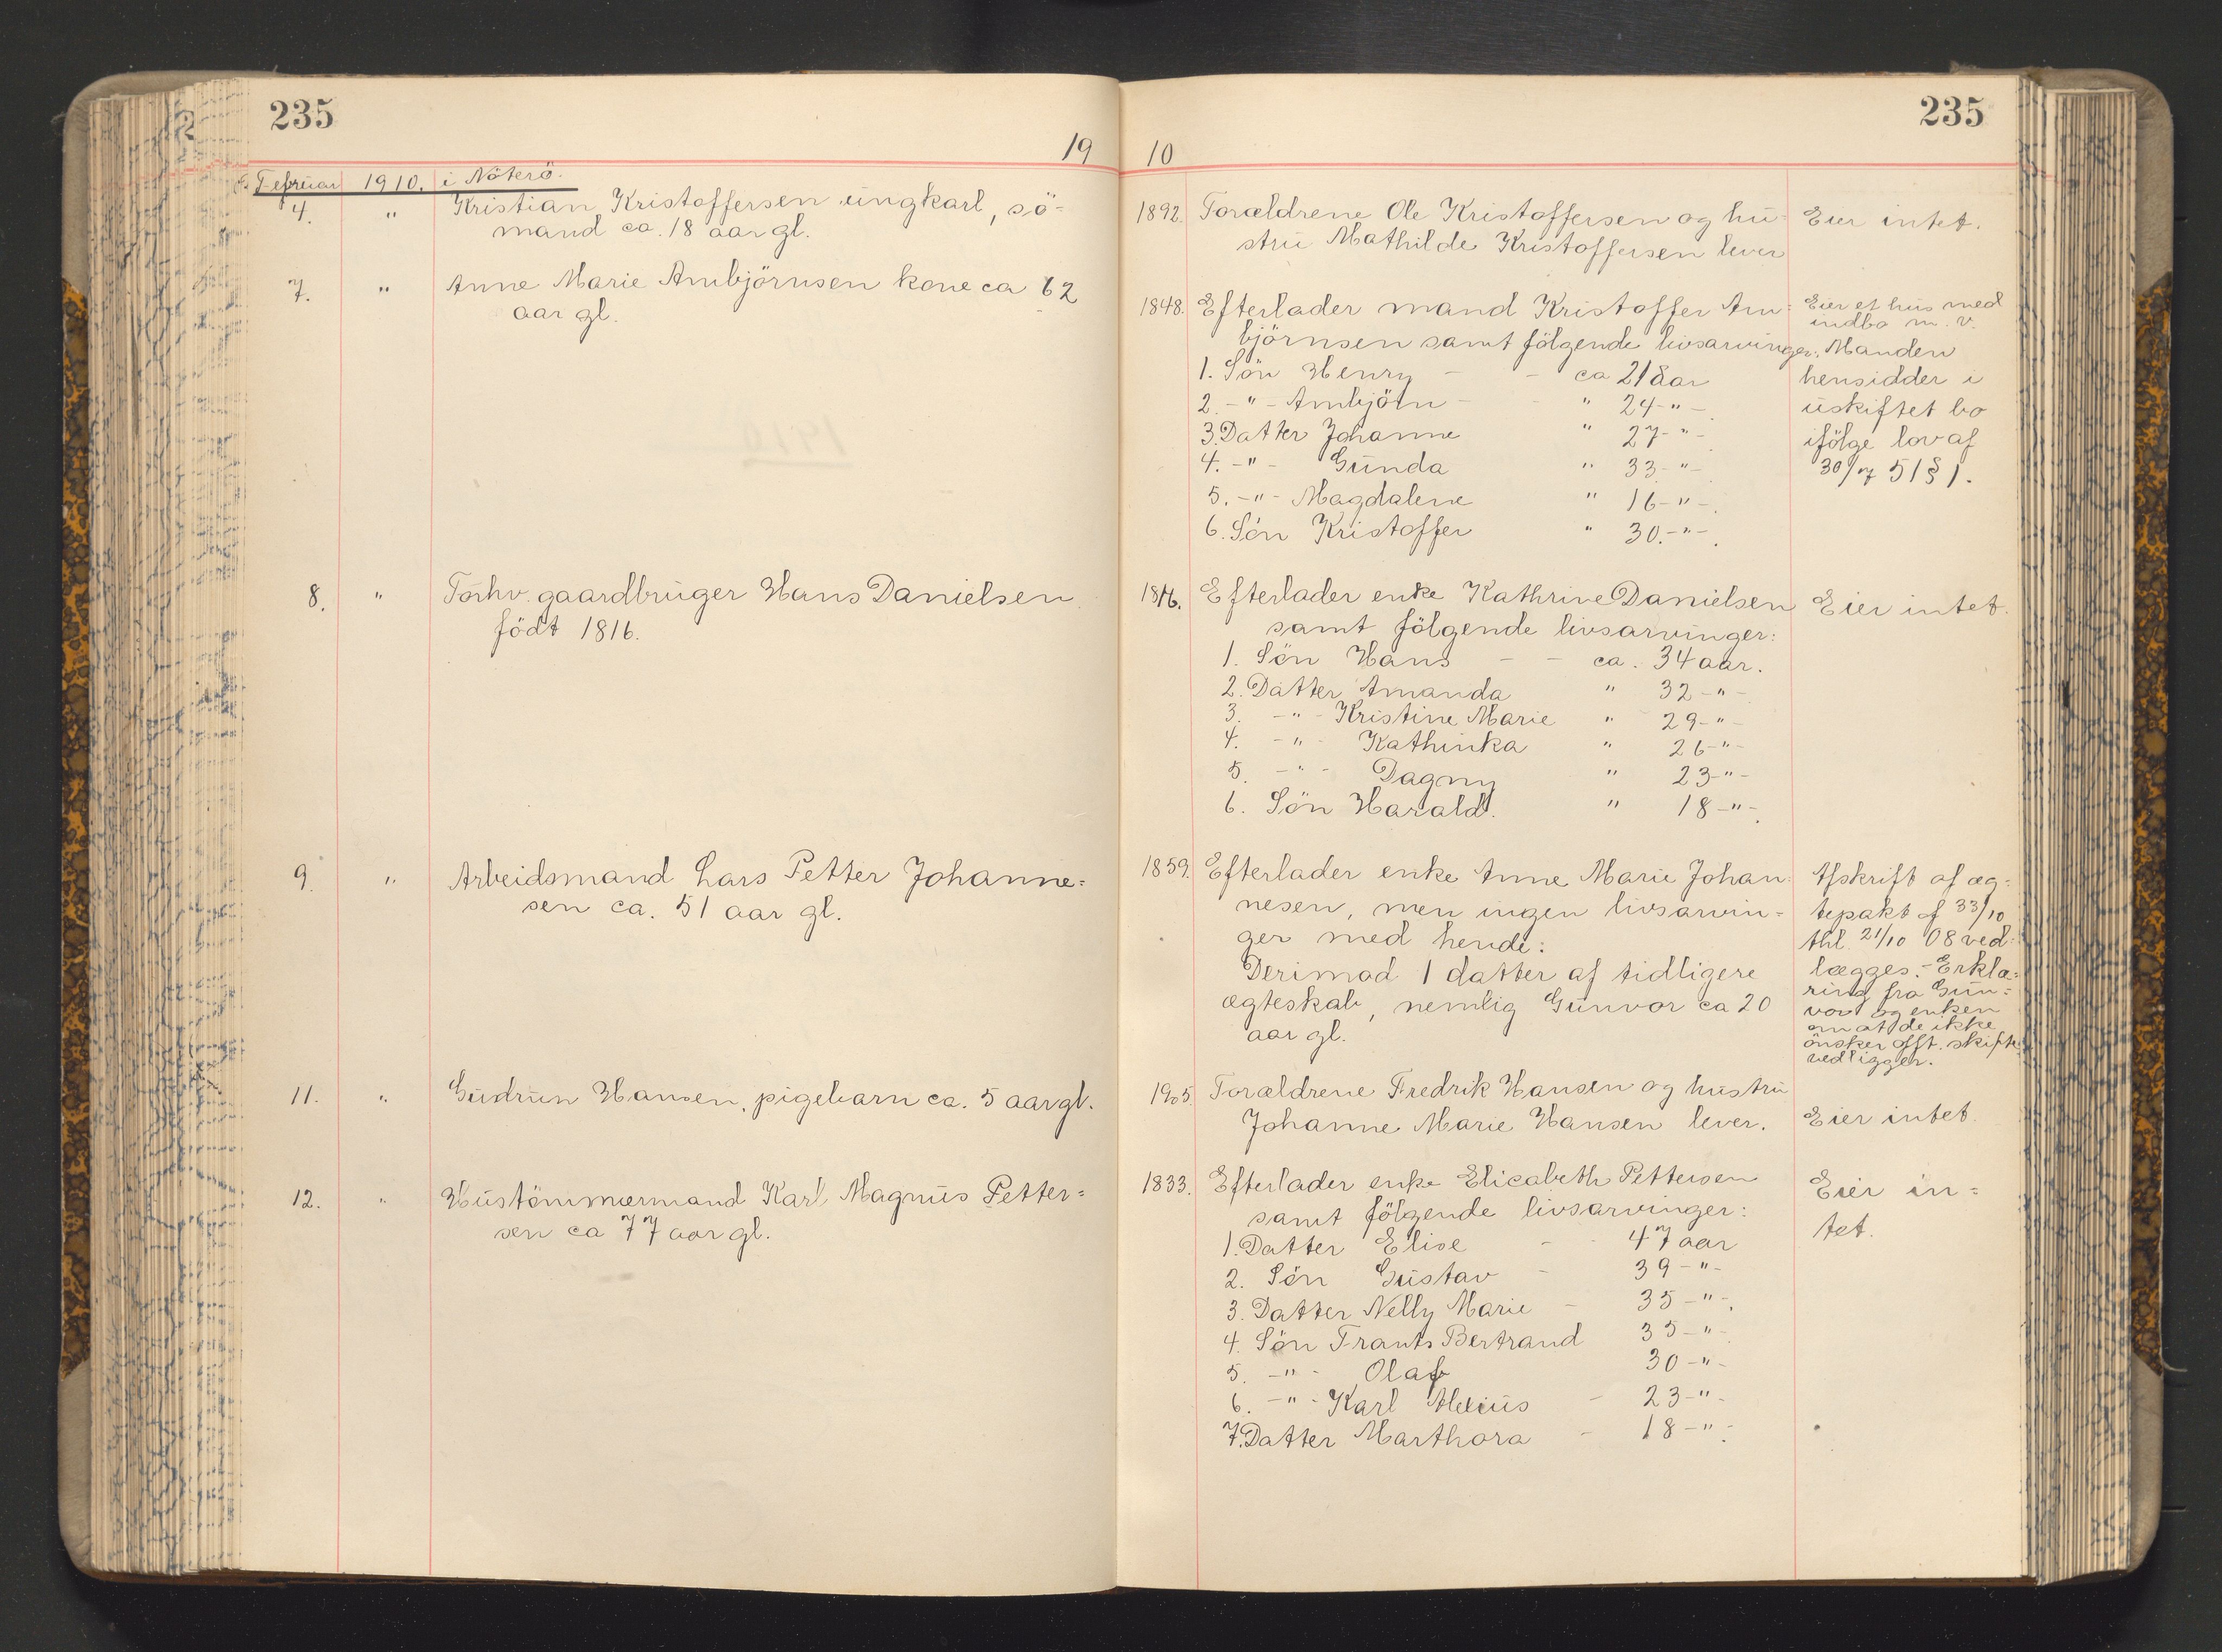 235
235
19 10
Februar 1910. i Nöterö.
4. " Kristian Kristoffersen ungkarl, sö=
mand ca. 18 aar gl.
1892. Forældrene Ole Kristoffersen og hu=
strü Mathilde Kristoffersen lever
Eier intet.
7. " Anne Marie Arnbjörnsen kone ca 62
aar gl.
1848. Efterlader mand Kristoffer Arn=
björnsen samt fölgende livsarvinger:
1. Sön Henry - - ca 21 aar
2. -"- Arnbjörn - - " 24-"-.
3. Datter Johanne " 27-"-
4. -"- Günda " 33-"-
5. -"- Magdalene " 16-"-.
6. Sön Kristoffer " 30.-"-.
Eier et hus med
indbo m. v.
Manden
hensidder i
üskiftet bo
ifölge lov af
30/7 51 § 1.
8. " Forhv. gaardbrüger Hans Danielsen
födt 1816.
1816. Efterlader enke Kathrine Danielsen
samt fölgende livsarvinger:
1. Sön Hans - - ca. 34 aar.
2. Datter Amanda " 32-"-
3. -"- Kristine Marie " 29-"-
4. -"- Kathinka " 26-"-
5. -"- Dagny " 23-"-
6. Sön Harald. " 18-"-.
Eier intet.
9. " Arbeidsmand Lars Petter Johanne=
sen ca. 51 aar gl.
1859. Efterlader enke Anne Marie Johan=
nesen, men ingen livsarvin=
ger med hende:
Derimod 1 datter af tidligere
ægteskab, nemlig Günvor ca 20
aar gl.
Afskrift af æg=
tepakt af 33/10
thl. 21/10 08 ved=
lægges. - Erklæ=
ring fra Gün=
vor og enken
om at de ikke
önsker offt. skifte
vedligger.
11. " Güdrün Hansen, pigebarn ca. 5 aar gl.
1905. Forældrene Fredrik Hansen og hüstrü
Johanne Marie Hansen lever.
Eier intet.
12. " Hüstömmermand Karl Magnüs Petter=
sen ca 77 aar gl.
1833. Efterlader enke Elisabeth Pettersen
samt fölgende livsarvinger:
1. Datter Elise - - 47 aar
2. Sön Güstav - 39-"-
3. Datter Nelly Marie - 35-"-.
4. Sön Frants Bertrand 35-"-.
5. -"- Olaf 30-"-
6. -"- Karl Alexiüs - 23-"-
7. Datter Marthora - 18-"-.
Eier in=
tet.